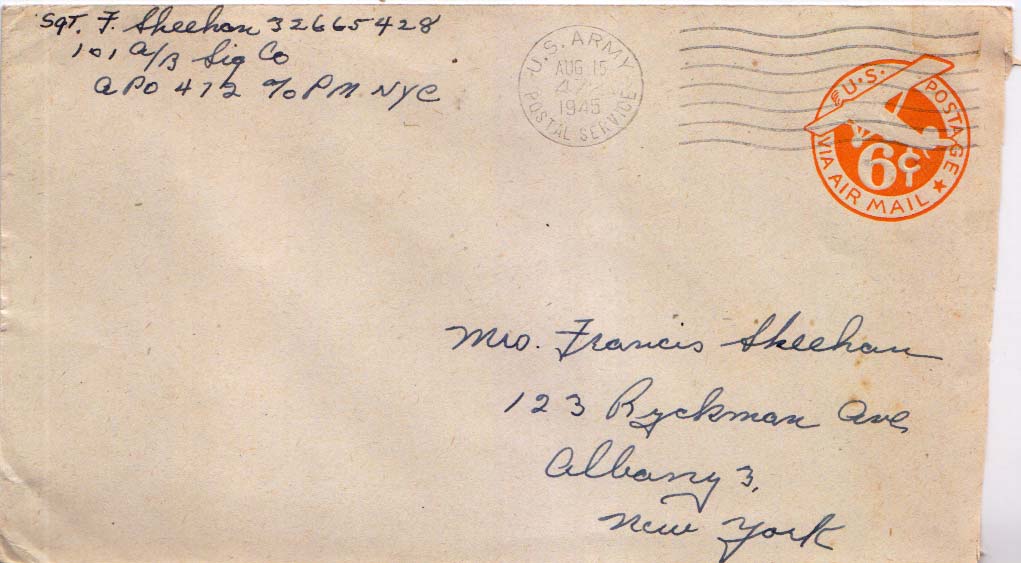 Sgt. F. Skeehan 32665428
101 A/B Sig Co
APO 472 c/o PM NYC
U.S. ARMY
AUG 15
472
1945
POSTAL SERVICE
U.S. POSTAGE
6¢
VIA AIR MAIL
Mrs. Francis Skeehan
123 Ryckman Ave,
Albany 3,
New York